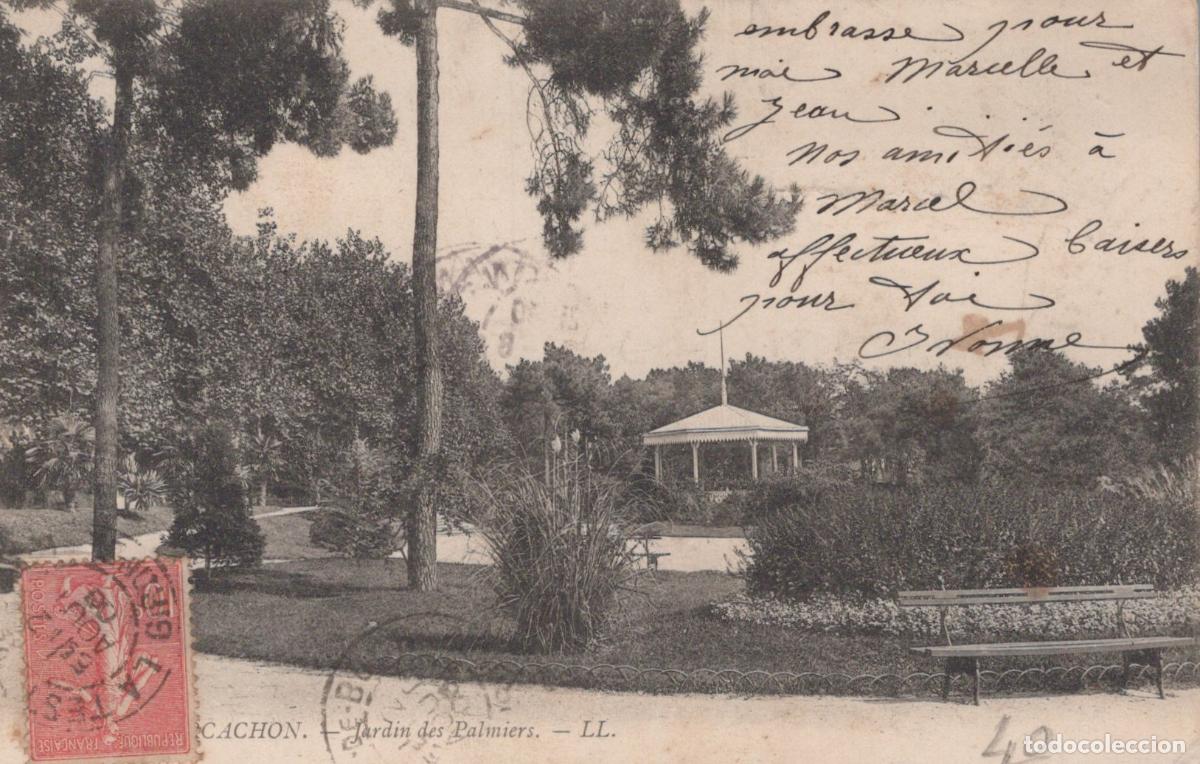 embrasse pour
moi Marcelle et
Jean.
Nos amitiés à
Marcel
affectueux baisers
pour toi
Yvonne
POSTES
REPUBLIQUE FRANÇAISE
CACHON. — Jardin des Palmiers. — LL.
42
todocoleccion